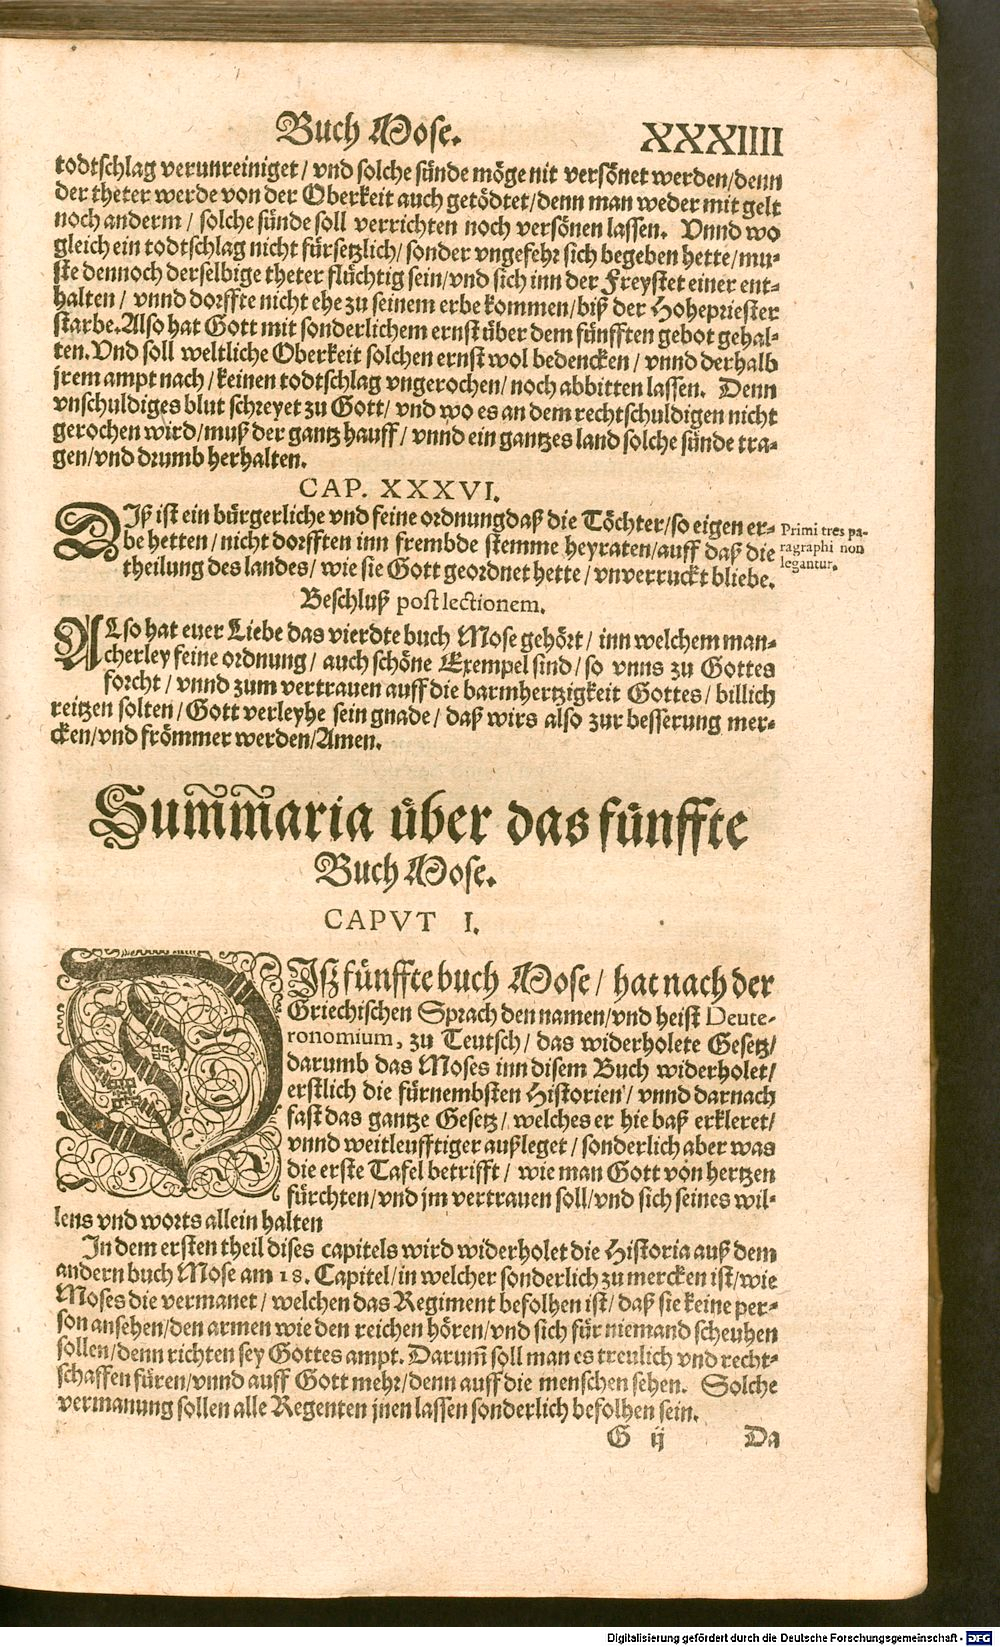 Buch Mose. XXXIIII
todtschlag verunreiniget / vnd solche sünde möge nit versönet werden/denn
der theter werde von der Oberkeit auch getödtet/denn man weder mit gelt
noch anderm / solche sünde soll verrichten noch versönen lassen. Vnnd wo
gleich ein todtschlag nicht fürsetzlich/ sonder vngefehr sich begeben hette/mu-
ste dennoch derselbige theter flüchtig sein/vnd sich inn der Freystet einer ent-
halten / vnnd dorffte nicht ehe zu seinem erbe kommen/biß der Hohepriester
starbe.Also hat Gott mit sonderlichem ernst über dem fünfften gebot gehal-
ten.Vnd soll weltliche Oberkeit solchen ernst wol bedencken / vnnd derhalb
jrem ampt nach / keinen todtschlag vngerochen/ noch abbitten lassen. Denn
vnschuldiges blut schreyet zu Gott/ vnd wo es an dem rechtschuldigen nicht
gerochen wird/muß der gantz hauff / vnnd ein gantzes land solche sünde tra-
gen/vnd drumb herhalten.
CAP. XXXVI.
DIß ist ein bürgerliche vnd feine ordnung daß die Töchter/so eigen er-
be hetten / nicht dorfften inn frembde stemme heyraten/auff daß die
theilung des landes/ wie sie Gott geordnet hette / vnverruckt bliebe.
Primi tres pa-
ragraphi non
legantur.
Beschluß post lectionem.
ALso hat euer Liebe das vierdte buch Mose gehört/ inn welchem man-
cherley feine ordnung/ auch schöne Exempel sind/ so vnns zu Gottes
forcht / vnnd zum vertrauen auff die barmhertzigkeit Gottes/ billich
reitzen solten / Gott verleyhe sein gnade / daß wirs also zur besserung mer-
cken/vnd frömmer werden/Amen.
Sum̃m̃aria über das fünffte
Buch Mose.
CAPVT I.
DIsz fünffte buch Mose / hat nach der
Griechischen Sprach den namen/vnd heist Deute-
ronomium, zu Teutsch/ das widerholete Gesetz/
darumb das Moses inn disem Buch widerholet/
erstlich die fürnembsten Historien / vnnd darnach
fast das gantze Gesetz / welches er hie baß erkleret/
vnnd weitleufftiger außleget / sonderlich aber was
die erste Tafel betrifft / wie man Gott von hertzen
fürchten/vnd jm vertrauen soll/vnd sich seines wil-
lens vnd worts allein halten
In dem ersten theil dises capitels wird widerholet die Historia auß dem
andern buch Mose am 18. Capitel/in welcher sonderlich zu mercken ist/wie
Moses die vermanet / welchen das Regiment befolhen ist/ daß sie keine per-
son ansehen/den armen wie den reichen hören/vnd sich für niemand scheuhen
sollen/denn richten sey Gottes ampt. Darum̃ soll man es treulich vnd recht-
schaffen füren/vnnd auff Gott mehr/denn auff die menschen sehen. Solche
vermanung sollen alle Regenten jnen lassen sonderlich befolhen sein.
G ij Da
Digitalisierung gefördert durch die Deutsche Forschungsgemeinschaft - DFG